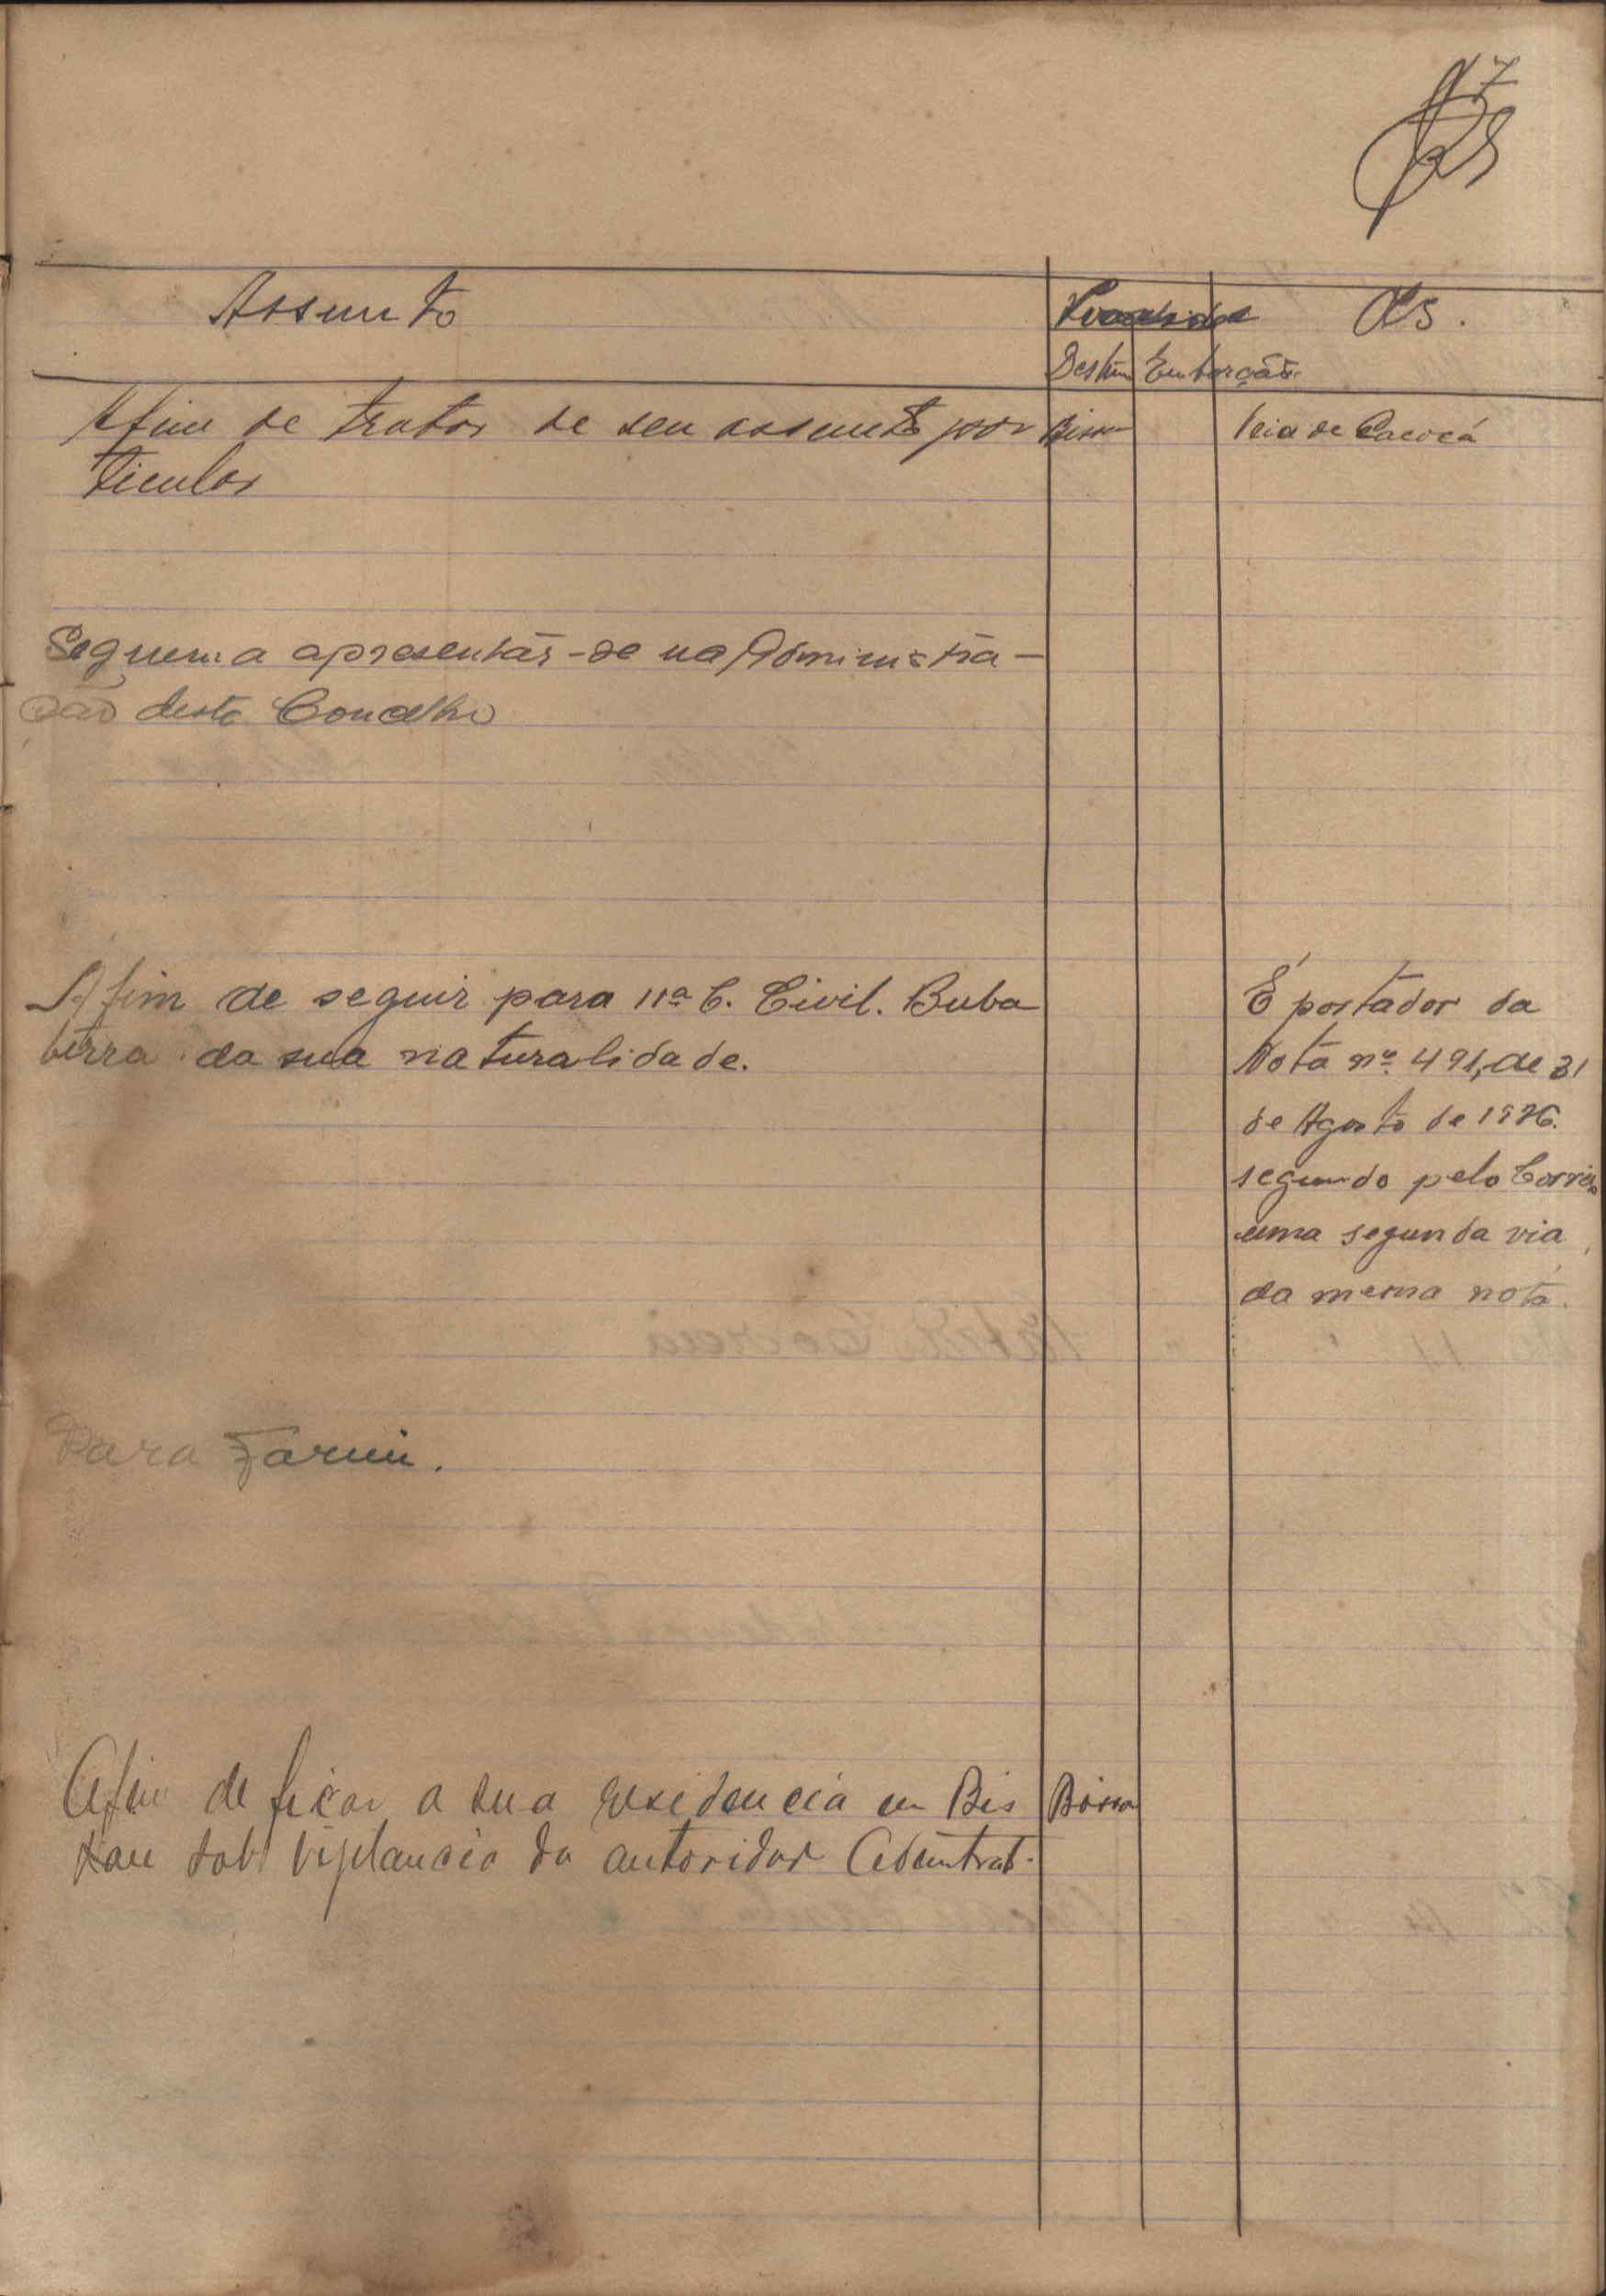 7
Assunto
Obs.
Destino Embarcação
Afim de tratar de seu assunto par
ticular
Bissau
Veia de Cacocá
Seguem a apresentár-se na Administra-
ção deste Concelho
Afim de seguir para na C. Civil. Buba
terra da sua naturalidade.
É portador da
Nota nº 491, de 31
de Agosto de 1936.
segundo pelo Correio
uma segunda via
da mesma nota.
Para Farim.
Afim de ficar a sua residencia em Bis
sau sob vigilancia da autoridad Administrat.
Bissau